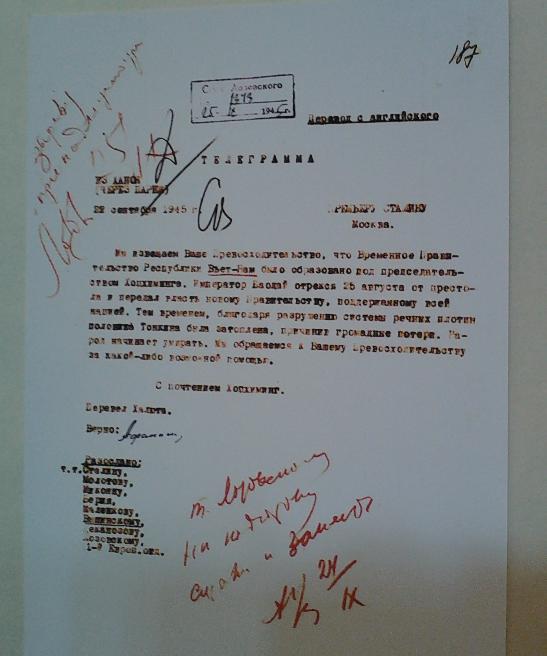 187
С-т т. Лозовского
Перевод с английского
ТЕЛЕГРАММА
ИЗ ХАНОЯ
(ЧЕРЕЗ ПАРИЖ)
22 сентября 1945 г.
ПРЕМЬЕРУ СТАЛИНУ
Москва.
Мы извещаем Ваше Превосходительство, что Временное Прави-
тельство Республики Вьет-Нам было образовано под председатель-
ством Хошимина. Император Баодай отрекся 25 августа от престо-
ла и передал власть новому Правительству, поддержанному всей
нацией. Тем временем, благодаря разрушению системы речных плотин
половина Тонкина была затоплена, причинив громадные потери. На-
род начинает умирать. Мы обращаемся к Вашему Превосходительству
за какой-либо возможной помощью.
С почтением Хошимин.
Перевел
Верно:
Разослано:
т.т.Сталину,
Молотову,
Микояну,
Берия,
Маленкову,
Вышинскому,
Деканозову,
Лозовскому,
1-й Европ.отд.
т. Лозовскому
24
IX